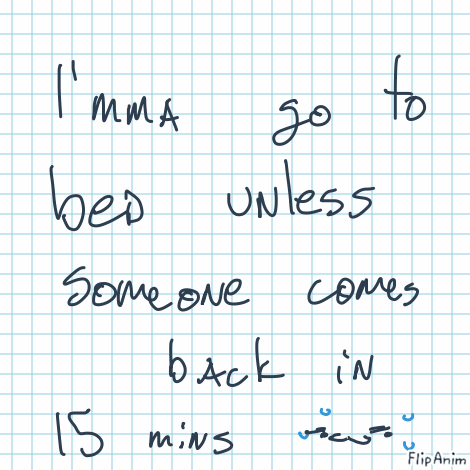 I'mmA go to
beD uNless
someoNe comes
bAck iN
15 mins
FlipAnim